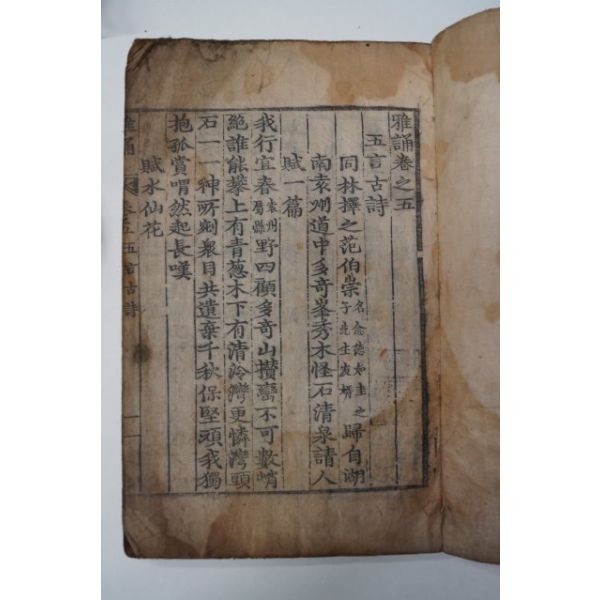 雅誦卷之五
五言古詩
同林擇之范伯崇名念德如圭之子先生友婿歸自湖
南袁州道中多奇峯秀木怪石清泉請人
賦一篇
我行宜春袁州属縣野四顧多奇山攢巒不可數峭
絶誰能攀上有青葱木下有清泠灣更憐灣頭
石一一神所剜衆目共遺棄千秋保堅頑我獨
抱孤賞喟然起長嘆
賦水仙花
雅誦 卷五 五言古詩 一